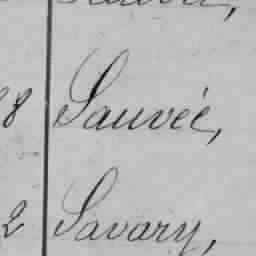 8 Sauvée,
2 Savary,